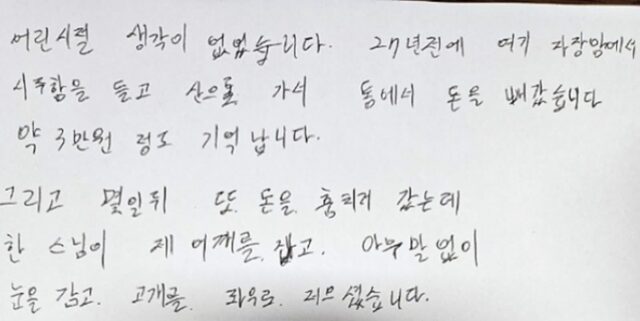 어린시절 생각이 없었습니다. 27년전에 여기 자장암에서
시주함을 들고 산으로 가서 통에서 돈을 빼갔습니다
약 3만원 정도 기억납니다.
그리고 몇일뒤 또 돈을 훔치러 갔는데
한 스님이 제 어깨를 잡고, 아무말 없이
눈을 감고, 고개를 좌우로 저으셨습니다.